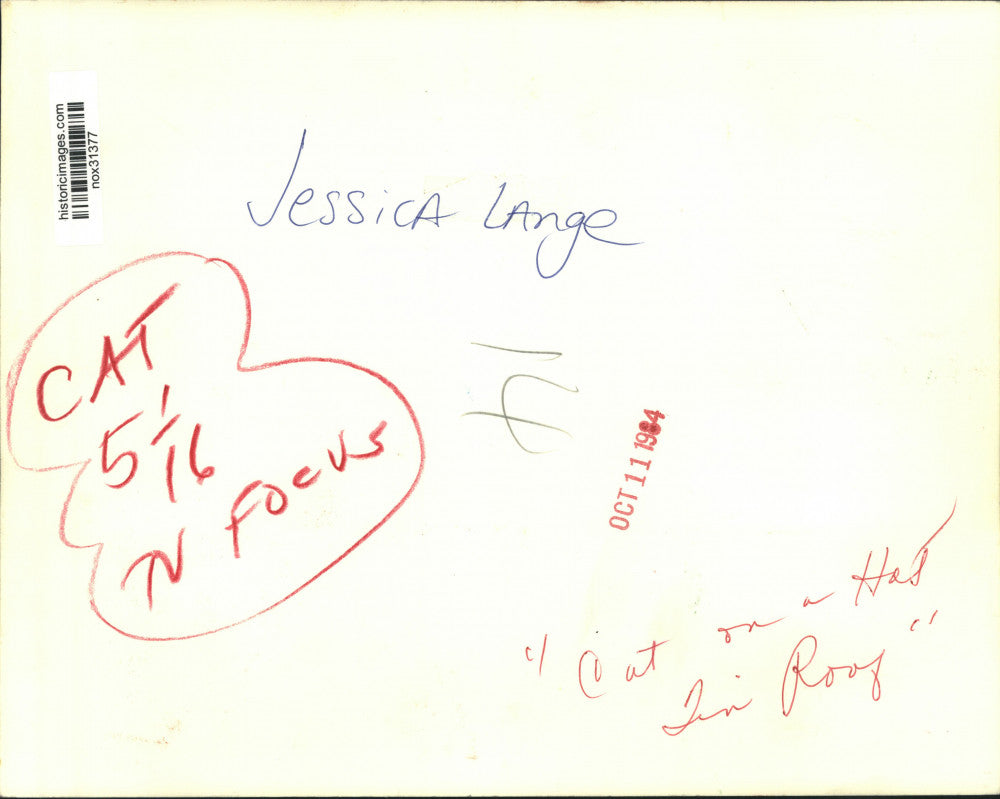 historicimages.com
nox31377
Jessica Lange
CAT
5/16
TV FOCUS
OCT 11 1984
"Cat on a Hot
Tin Roof"